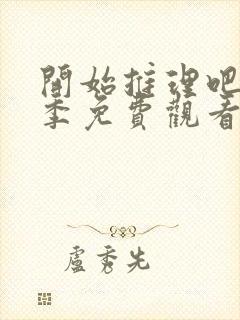 開始推理吧
季免費觀看
盧秀先